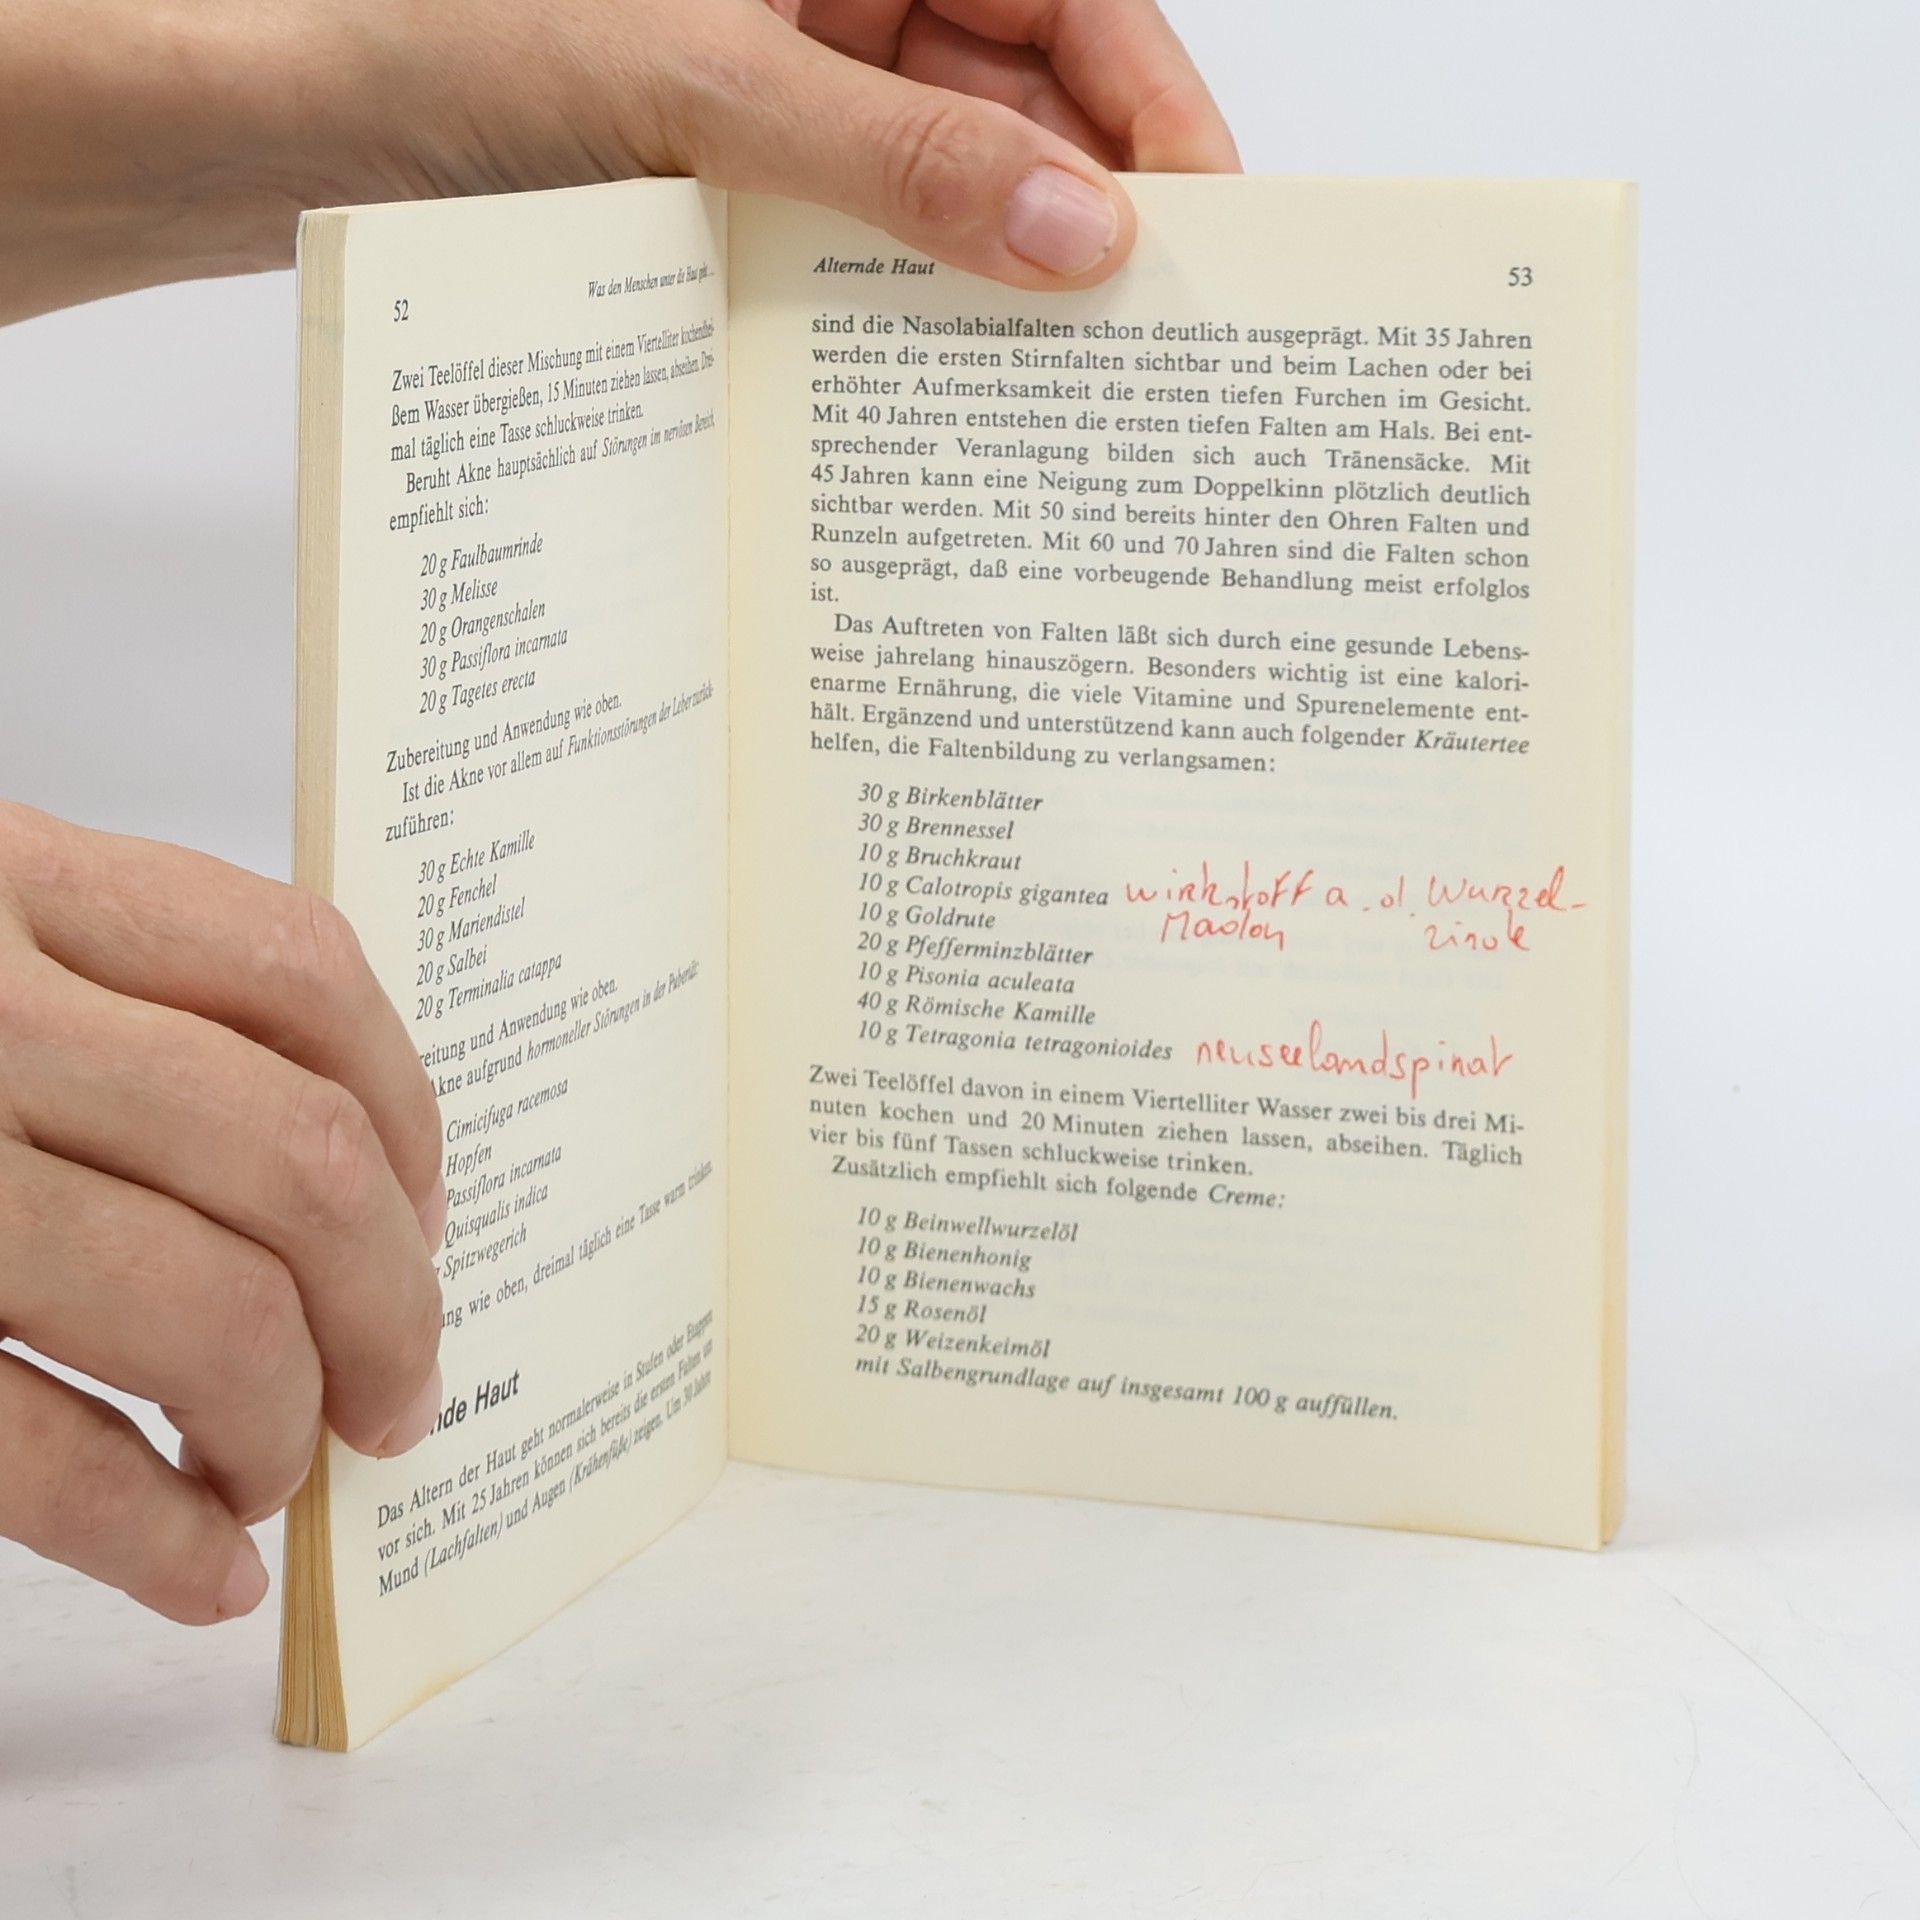 52
Was den Menschen unter die Haut geht ...
Zwei Teelöffel dieser Mischung mit einem Viertelliter kochendhei-
ßem Wasser übergießen, 15 Minuten ziehen lassen, abseihen. Drei-
mal täglich eine Tasse schluckweise trinken.
Beruht Akne hauptsächlich auf Störungen im nervösen Bereich,
empfiehlt sich:
20 g Faulbaumrinde
30 g Melisse
20 g Orangenschalen
30 g Passiflora incarnata
20 g Tagetes erecta
Zubereitung und Anwendung wie oben.
Ist die Akne vor allem auf Funktionsstörungen der Leber zurück-
zuführen:
30 g Echte Kamille
20 g Fenchel
30 g Mariendistel
20 g Salbei
20 g Terminalia catappa
reitung und Anwendung wie oben.
Akne aufgrund hormoneller Störungen in der Pubertät:
Cimicifuga racemosa
Hopfen
Passiflora incarnata
Quisqualis indica
Spitzwegerich
ung wie oben, dreimal täglich eine Tasse warm trinken.
nde Haut
Das Altern der Haut geht normalerweise in Stufen oder Etappen
vor sich. Mit 25 Jahren können sich bereits die ersten Falten um
Mund (Lachfalten) und Augen (Krähenfüße) zeigen. Um 30 Jahre
Alternde Haut
53
sind die Nasolabialfalten schon deutlich ausgeprägt. Mit 35 Jahren
werden die ersten Stirnfalten sichtbar und beim Lachen oder bei
erhöhter Aufmerksamkeit die ersten tiefen Furchen im Gesicht.
Mit 40 Jahren entstehen die ersten tiefen Falten am Hals. Bei ent-
sprechender Veranlagung bilden sich auch Tränensäcke. Mit
45 Jahren kann eine Neigung zum Doppelkinn plötzlich deutlich
sichtbar werden. Mit 50 sind bereits hinter den Ohren Falten und
Runzeln aufgetreten. Mit 60 und 70 Jahren sind die Falten schon
so ausgeprägt, daß eine vorbeugende Behandlung meist erfolglos
ist.
Das Auftreten von Falten läßt sich durch eine gesunde Lebens-
weise jahrelang hinauszögern. Besonders wichtig ist eine kalori-
enarme Ernährung, die viele Vitamine und Spurenelemente ent-
hält. Ergänzend und unterstützend kann auch folgender Kräutertee
helfen, die Faltenbildung zu verlangsamen:
30 g Birkenblätter
30 g Brennessel
10 g Bruchkraut
10 g Calotropis gigantea wirkstoff a. d. Wurzel-
10 g Goldrute Madon rinde
20 g Pfefferminzblätter
10 g Pisonia aculeata
40 g Römische Kamille
10 g Tetragonia tetragonioides neuseelandspinat
Zwei Teelöffel davon in einem Viertelliter Wasser zwei bis drei Mi-
nuten kochen und 20 Minuten ziehen lassen, abseihen. Täglich
vier bis fünf Tassen schluckweise trinken.
Zusätzlich empfiehlt sich folgende Creme:
10 g Beinwellwurzelöl
10 g Bienenhonig
10 g Bienenwachs
15 g Rosenöl
20 g Weizenkeimöl
mit Salbengrundlage auf insgesamt 100 g auffüllen.